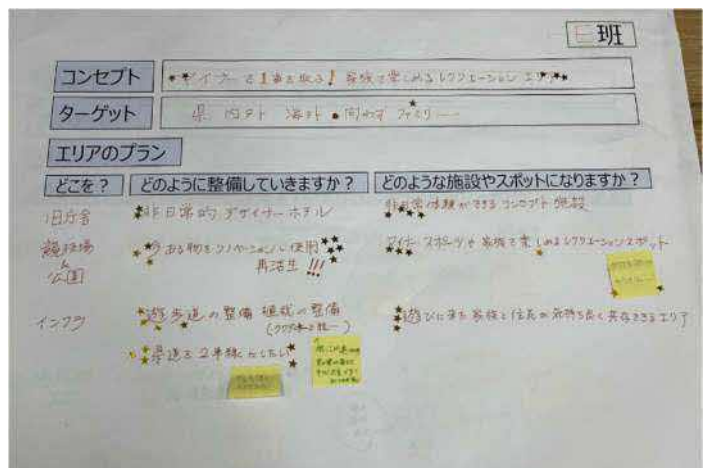 E班
コンセプト
マイナーで1番を取る！家族で楽しめるレクリエーションエリア
ターゲット
県内外 海外 問わず ファミリー
エリアのプラン
どこを？ どのように整備していきますか？ どのような施設やスポットになりますか？
旧庁舎 非日常的 デザイナーホテル 非日常体験ができる コンセプト施設
競技場
&
公園
今ある物をリノベーション 使用
再活生!!!
マイナースポーツや家族で楽しめるレクリエーションスポット
インフラ 遊歩道の整備 植栽の整備
遊びに来た家族と住民が気持ち良く共存できるエリア
県道を2車線にしたい